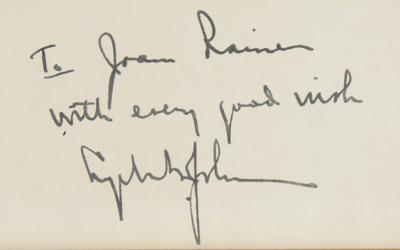 To Joan Rainer
with every good wish
Lyndon B. Johnson